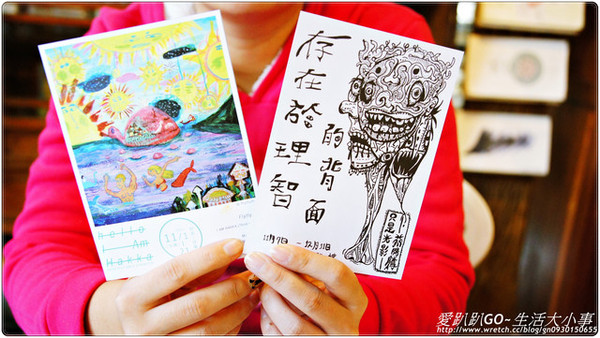 hello
I Am
Hakka
存在於理智
的背面
12月31日
只是光影
愛趴趴GO~生活大小事
http://www.wretch.cc/blog/gn0930150655